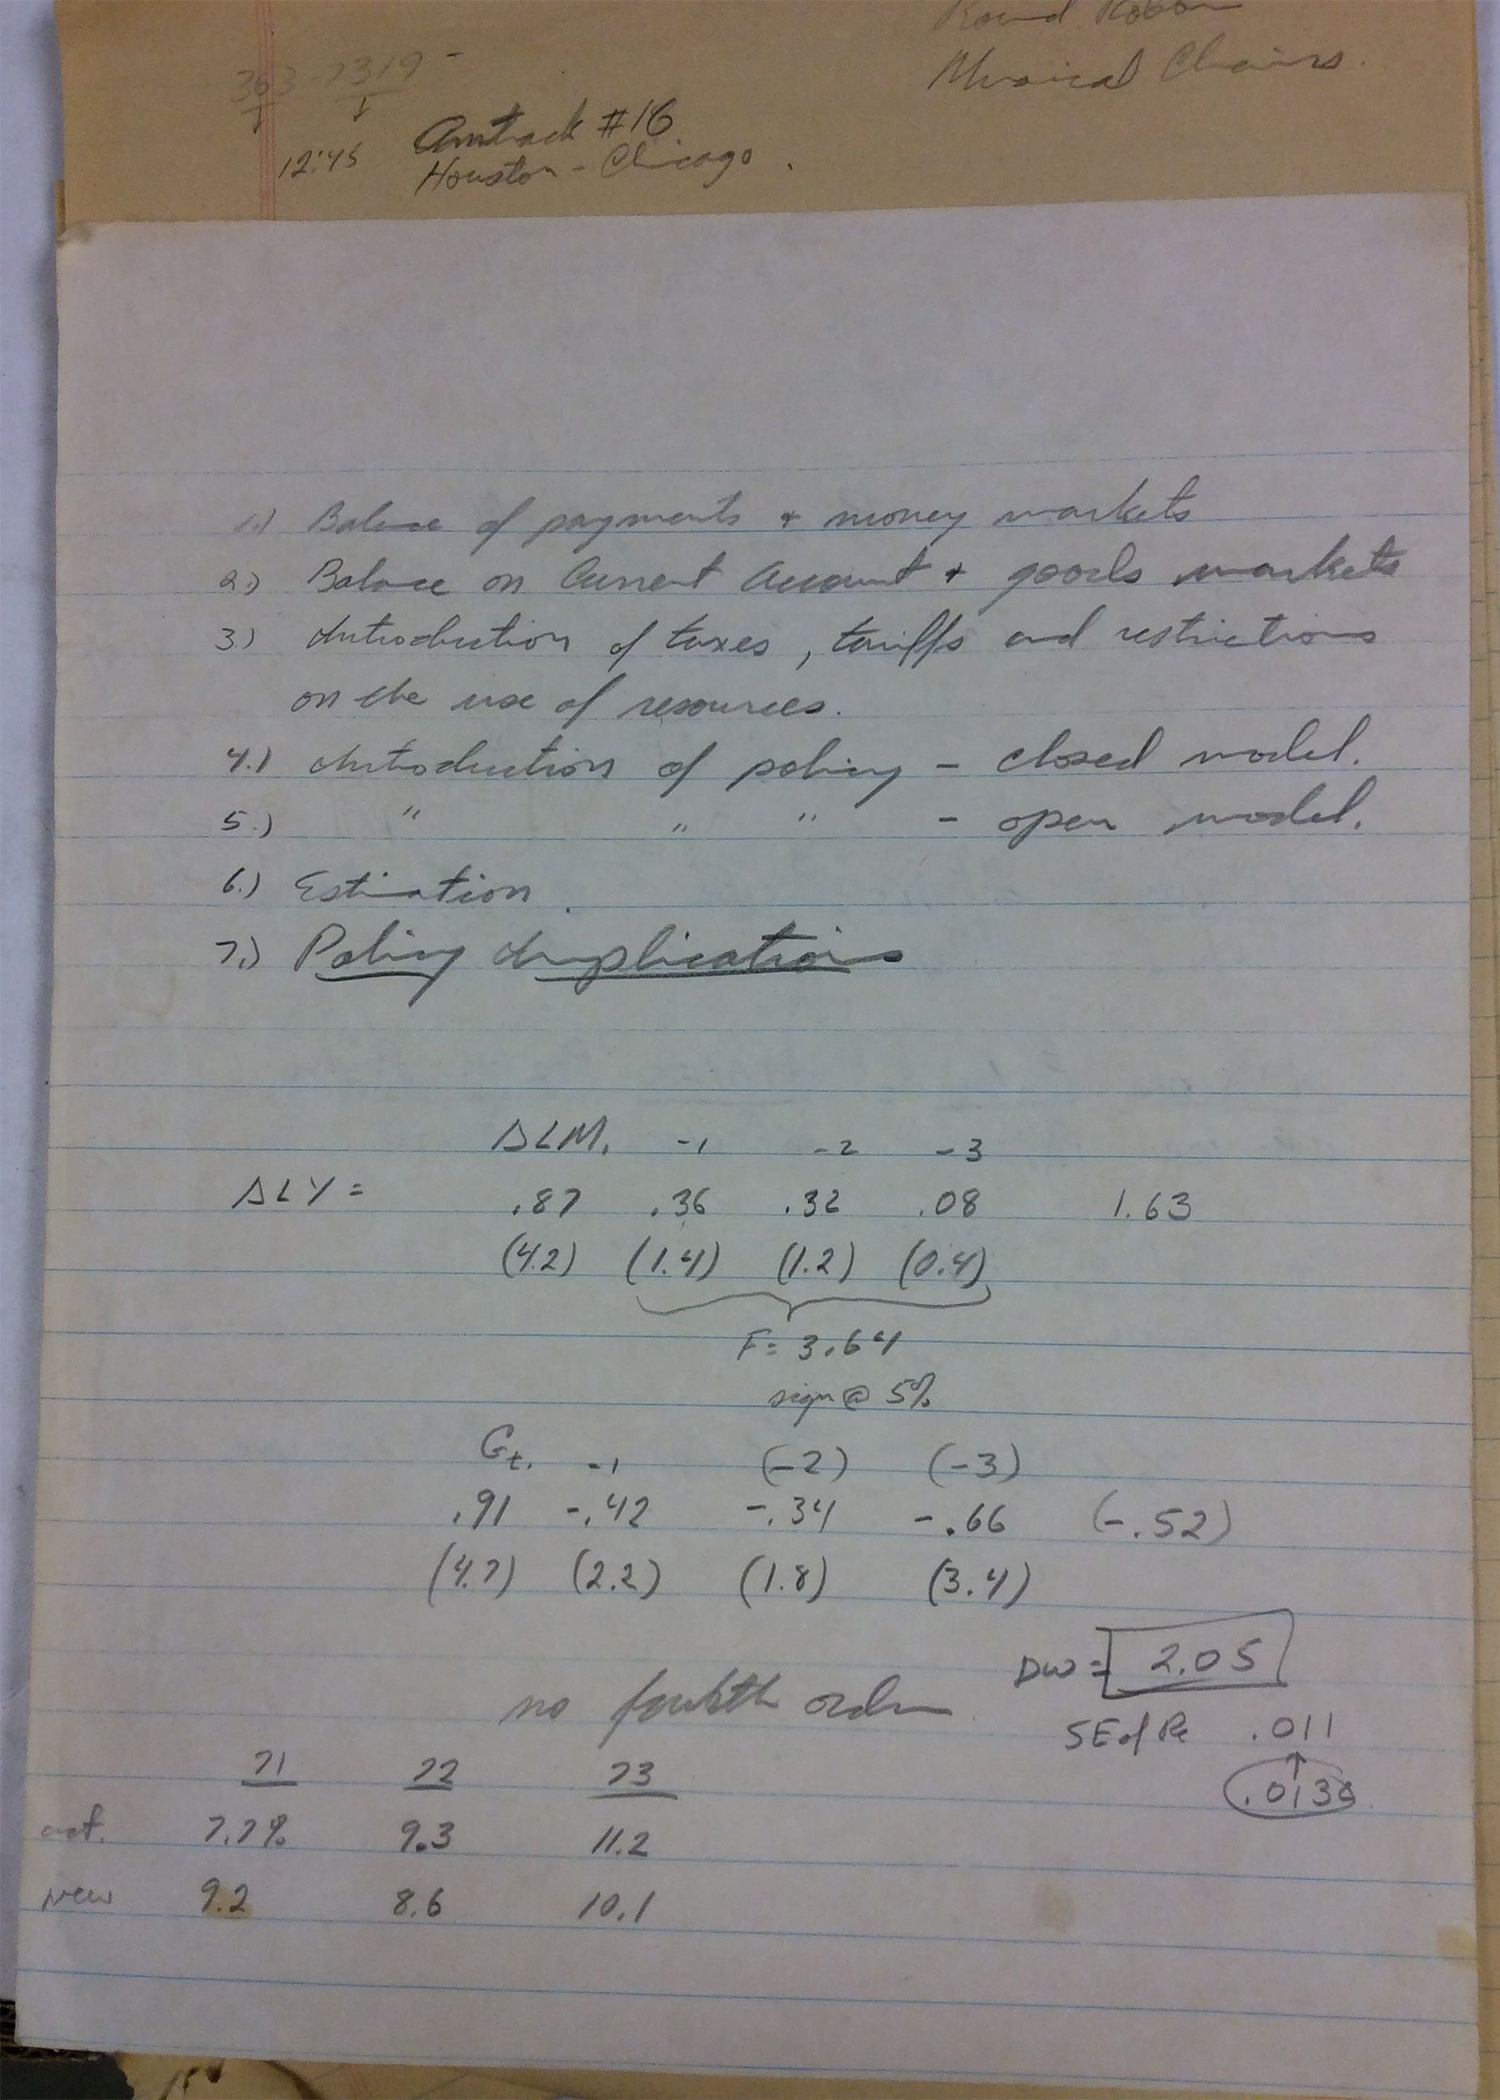 Round Robbin
Musical Chairs.
363-7319 -
12:45 Amtrack #16
Houston - Chicago.
1.) Balance of payments + money markets
2.) Balance on Current Account + goods markets
3.) Introduction of taxes, tariffs and restrictions
on the use of resources.
4.) Introduction of policy - closed model.
5.) " " " - open model.
6.) Estimation.
7.) Policy Implications
ΔLM. -1 -2 -3
ΔLY = .87 .36 .32 .08 1.63
(4.2) (1.4) (1.2) (0.4)
F = 3.64
sign @ 5%
Gt. -1 (-2) (-3)
.91 -.42 -.34 -.66 (-.52)
(4.7) (2.2) (1.8) (3.4)
DW = 2.05
no fourth order
SE of Re .011
.0138
71 72 73
act. 7.7% 9.3 11.2
new 9.2 8.6 10.1